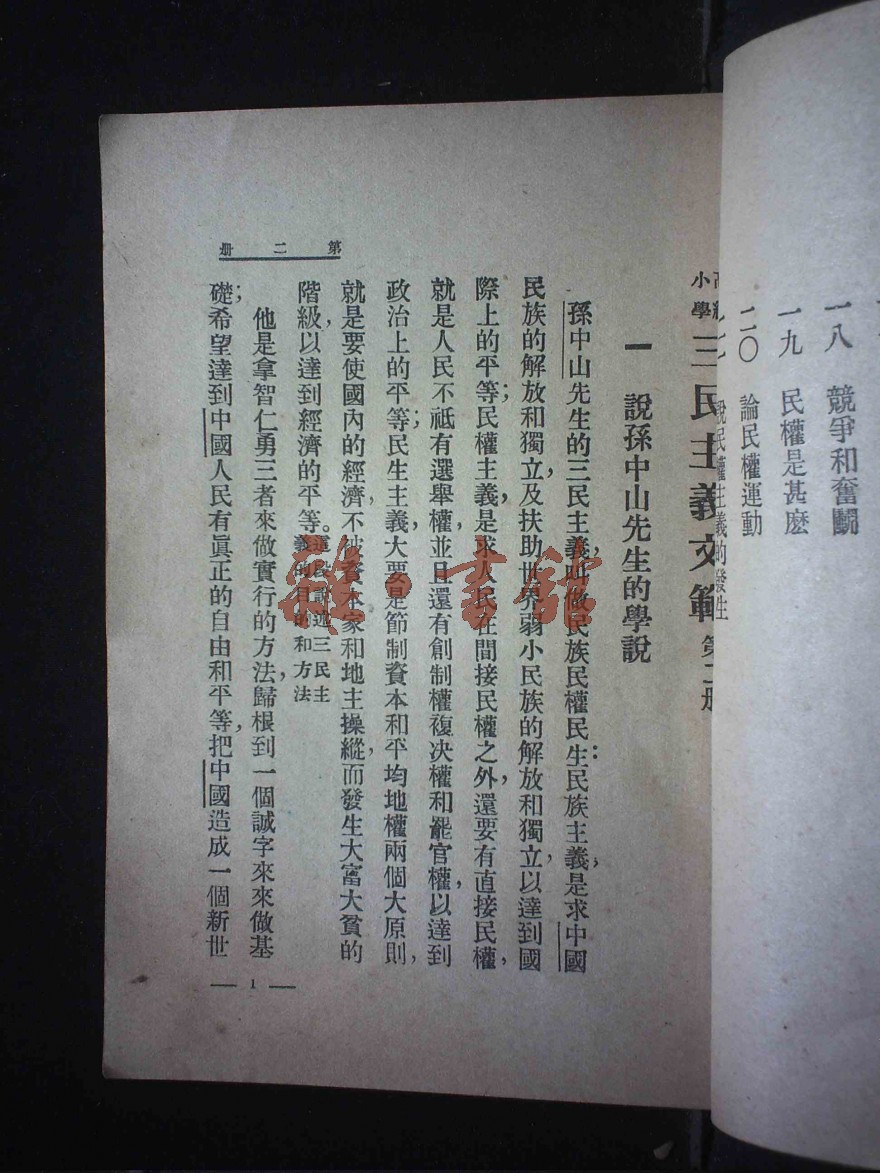 一八　競爭和奮鬭
一九　民權是甚麽
二〇　論民權運動
說民權主義的發生
小學
三民主義文範
第二册
一　說孫中山先生的學說
孫中山先生的三民主義，叫做民族民權民生：民族主義，是求中國
民族的解放和獨立，及扶助世界弱小民族的解放和獨立，以達到國
際上的平等；民權主義，是求人民在間接民權之外，還要有直接民權，
就是人民不祇有選舉權，並且還有創制權複决權和罷官權，以達到
政治上的平等；民生主義，大要是節制資本和平均地權兩個大原則，
就是要使國內的經濟，不被資本家和地主操縱，而發生大富大貧的
階級，以達到經濟的平等。這段說述三民主義的目的和方法
他是拿智仁勇三者來做實行的方法，歸根到一個誠字來來做基
礎；希望達到中國人民有眞正的自由和平等，把中國造成一個新世
第二册
— 1 —
雜·書館